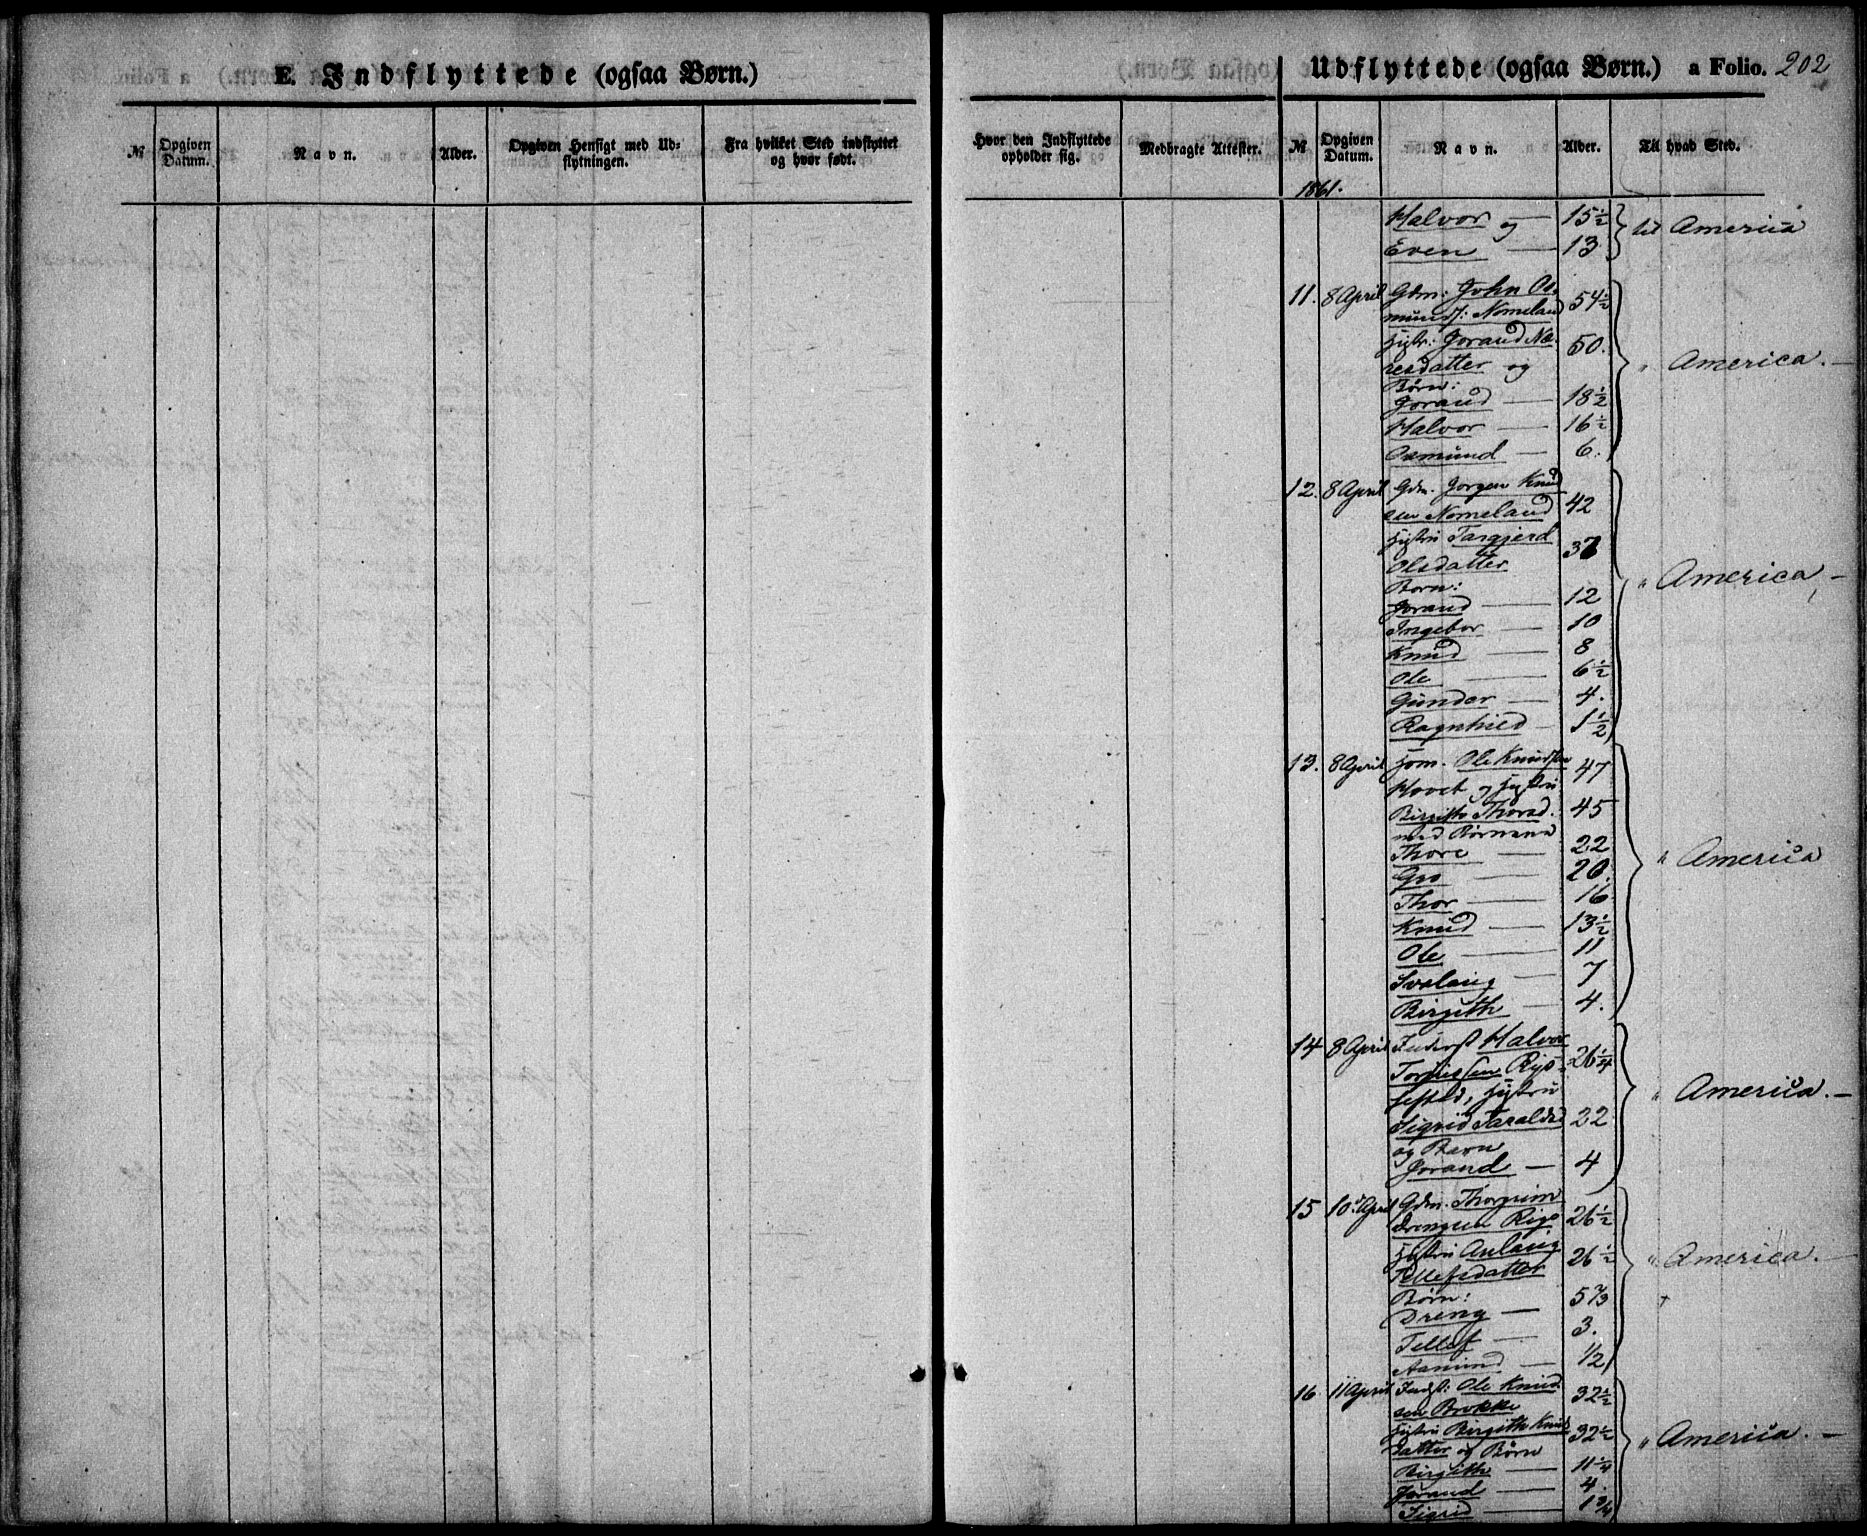 E. Indflyttede (ogsaa Børn.)
№ Opgiven Datum. Navn. Alder. Opgiven Hensigt med Udflytningen. Fra hvilket Sted indflyttet og hvor født.
Udflyttede (ogsaa Børn.) a Folio. 202
Hvor den Indflyttede opholder sig. Medbragte Attester. № Opgiven Datum. Navn. Alder. Til hvad Sted.
1861.
Halvor og — 15½
Even — 13 til America
11. 8 April Gdm: John Os-
mundss: Nomeland 54½
Hustr: Jorand Næ-
resdatter og 50.
Børn:
Jorand — 18½ " America. —
Halvor — 16½
Osmund — 6.
12. 8 April Gdm. Jørgen Knud
sen Nomeland 42
Hustru Targjerd
Olsdatter 37
Børn:
Jorand — 12 " America —
Ingebor — 10
Knud — 8
Ole — 6½
Gunder — 4.
Ragnhild — 1½
13. 8 April Hom. Ole Knudssen 47
Hovet og Hustru
Birgitte Thorsd. 45
med Børnene
Thore — 22
Gro — 20. " America
Thor — 16
Knud — 13½
Ole — 11
Svalaug — 7
Birgith — 4.
14 8 April Inderst Halvor
Torjussen Rys- 26¼
, Hustru
Sigrid Taraldsd 22 " America. —
og Barn
Jorand — 4
15 10 April Gdm. Thorgrim
Drengsen Rige 26½
Hustru Aulaug
Tellefsdatter 26½ " America. —
Børn:
Dreng — 5⅔
Tellef — 3.
Aamund — 1/2
16 11 April Indst: Ole Knud
sen Brokke 32½
Hustru Birgithe Knuds
datter og Børn 32½ " America. —
Birgithe — 11¼
Jorand — 4.
Sigrid — 1¾